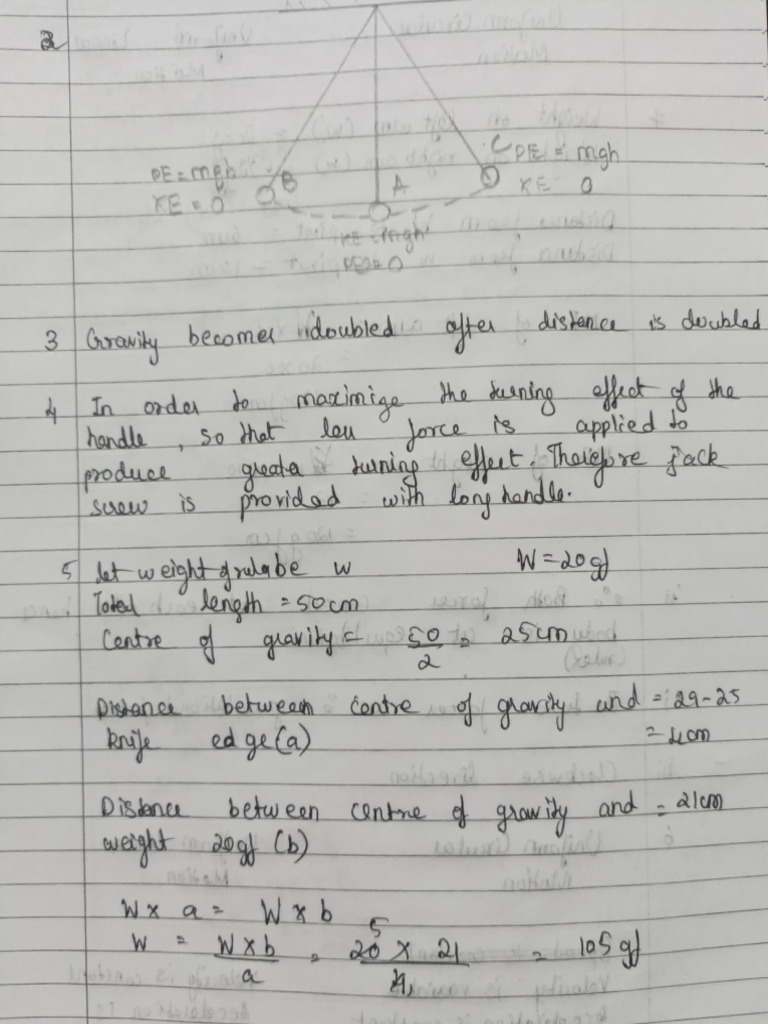 2
C PE = mgh
PE = mgh B A KE 0
KE = 0
KE = mgh
PE = 0
3 Gravity becomes doubled after distance is doubled
4 In order to maximize the turning effect of the
handle, so that less force is applied to
produce greater turning effect. Therefore jack
screw is provided with long handle.
5 let weight of ruler be w W = 20gf
Total length = 50cm
Centre of gravity = 50/2 = 25cm
Distance between centre of gravity and = 29-25
knife edge (a) = 4cm
Distance between centre of gravity and = 21cm
weight 20gf (b)
W x a = W x b
W = W x b / a = 20 5 x 21 / 4 = 105 gf